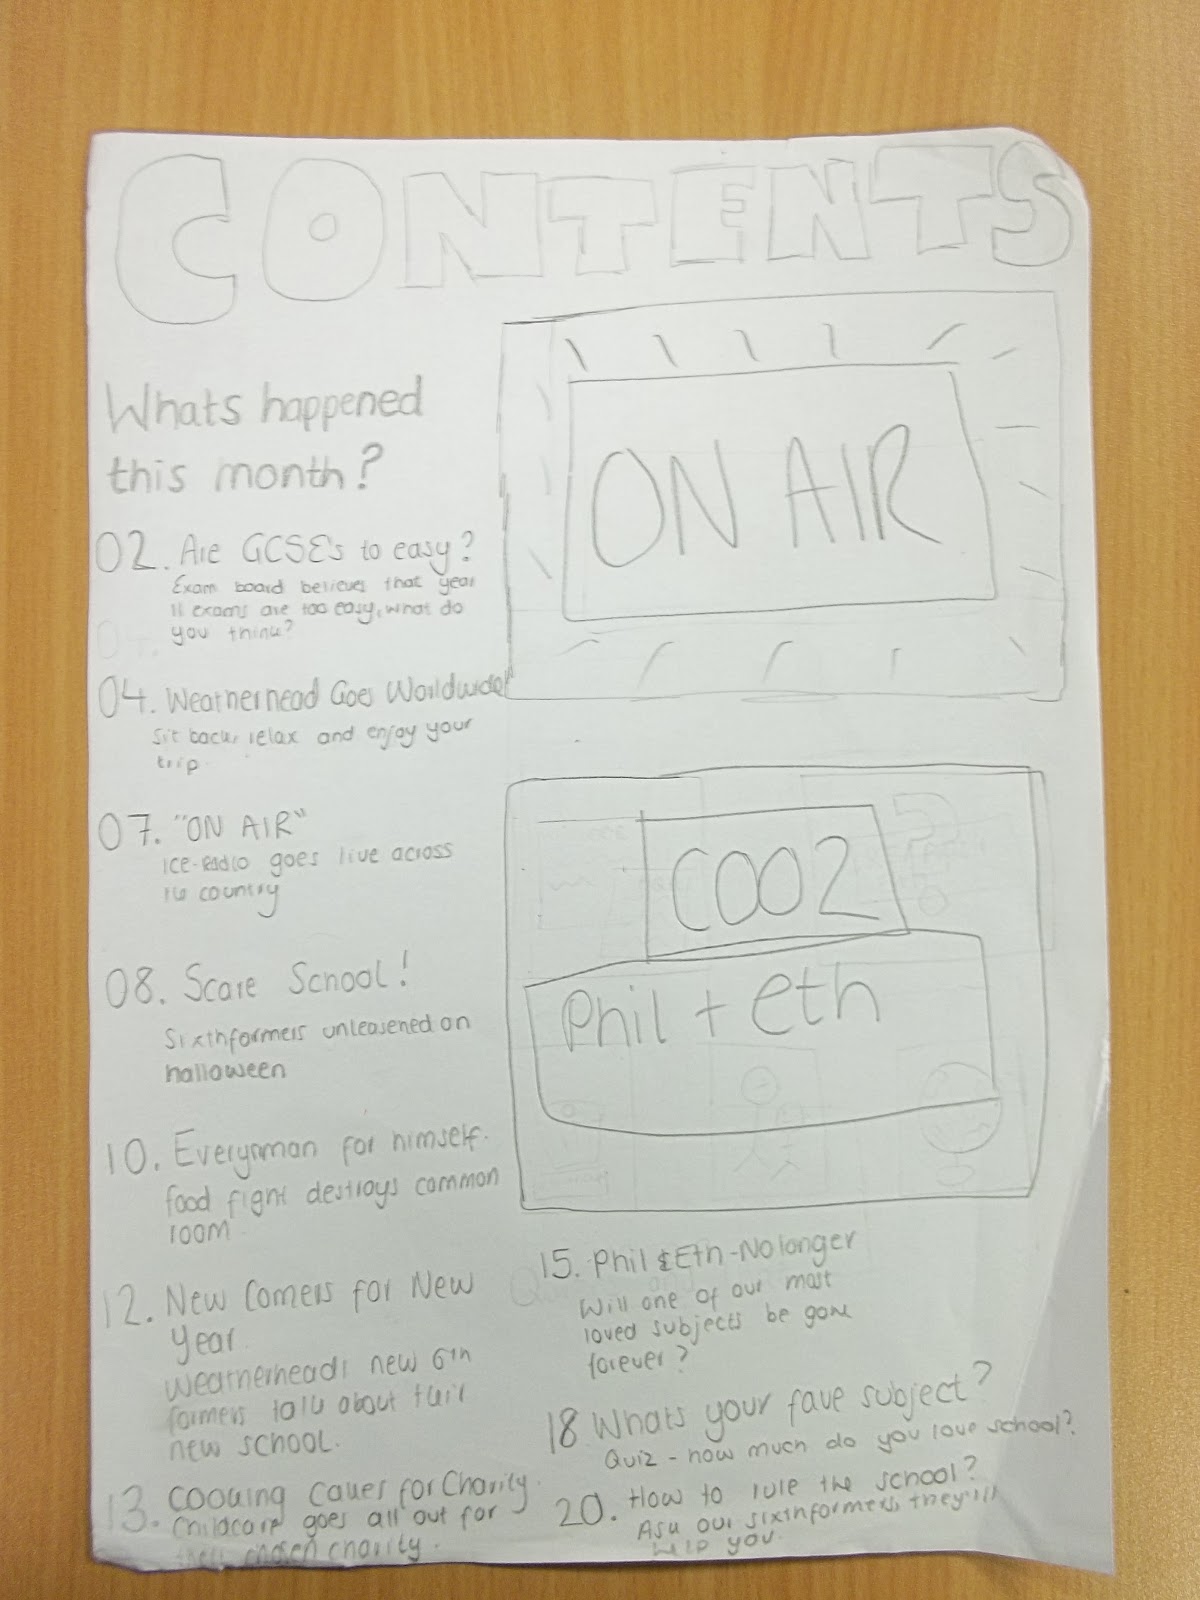 CONTENTS
Whats happened
this month?
02. Are GCSE's to easy?
Exam board believes that year
11 exams are too easy, what do
you think?
04. Weatherhead Goes Worldwide!
Sit back, relax and enjoy your
trip
07. "ON AIR"
ICE-Radio goes live across
16 country
08. Scare School!
Sixthformers unleashed on
halloween
10. Everyman for himself.
food fight destroys common
room
12. New Comers for New
Year
Weatherheads new 6th
formers talk about their
new school.
13. Cooking Cakes for Charity.
Childcare goes all out for
their chosen charity.
ON AIR
C002
Phil + eth
15. Phil & Eth - No longer
Will one of our most
loved subjects be gone
forever?
18 Whats your fave subject?
Quiz - how much do you love school?
20. How to rule the school?
Ask our sixthformers, they'll
help you.